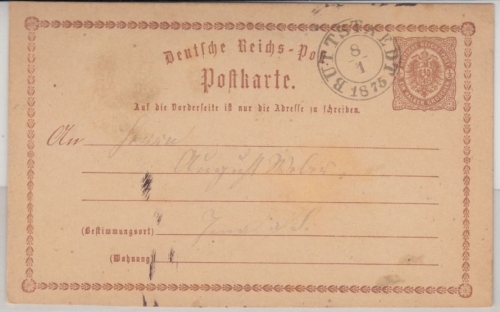 Deutsche Reichs-Po
Postkarte.
BUTTSTÆDT
8/1
1875
Auf die Vorderseite ist nur die Adresse zu schreiben.
An Herrn
August Weber
(Bestimmungsort)
(Wohnung)